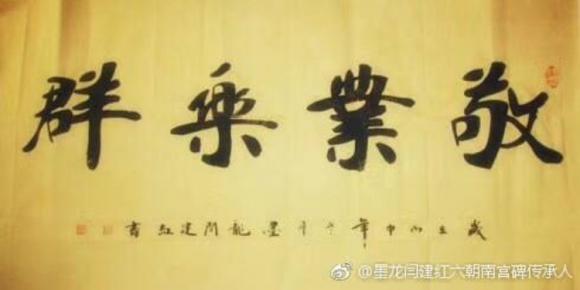 敬業樂群
歲在丙申年月墨龍閆建紅書
@墨龙闫建红六朝南宫碑传承人